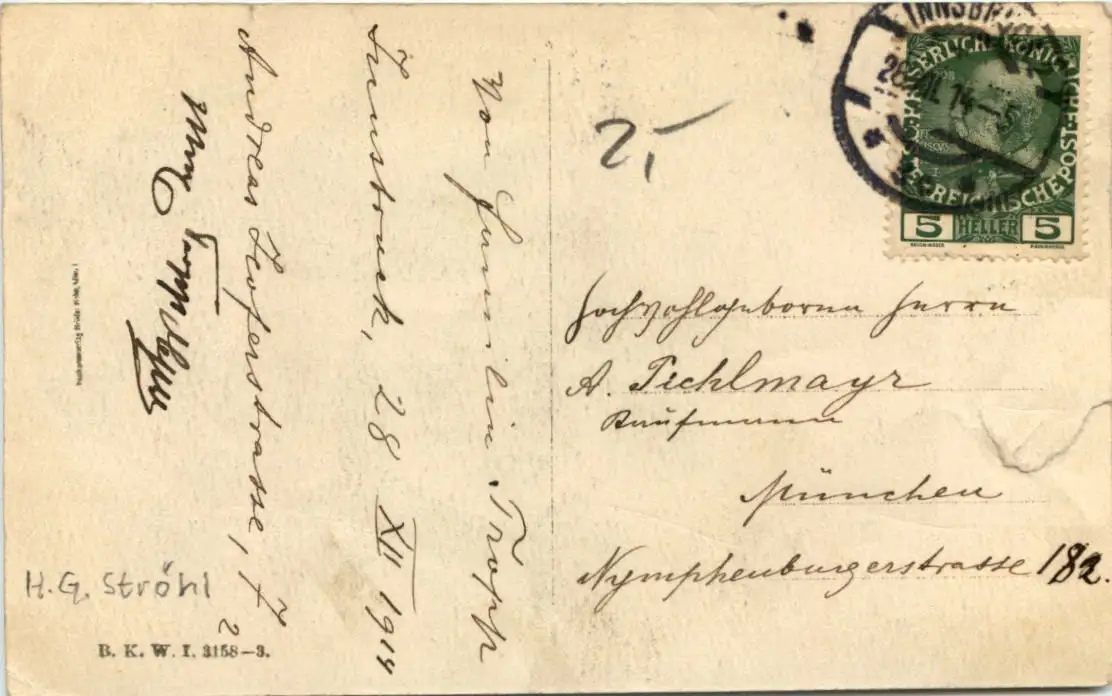 Von Familie Tropp
Innsbruck, 28 XII 1914
Andreas Hoferstrasse, 7
2
H. G. Ströhl
B. K. W. I. 3158-3.
2,-
INNSBRUCK
28 XII 14-5
KAISERLICH KÖNIGLICHE ÖSTERREICHISCHE POST
5 HELLER 5
Hochwohlgeboren Herrn
A. Pichlmayr
Kaufmann
München
Nymphenburgerstrasse 182.